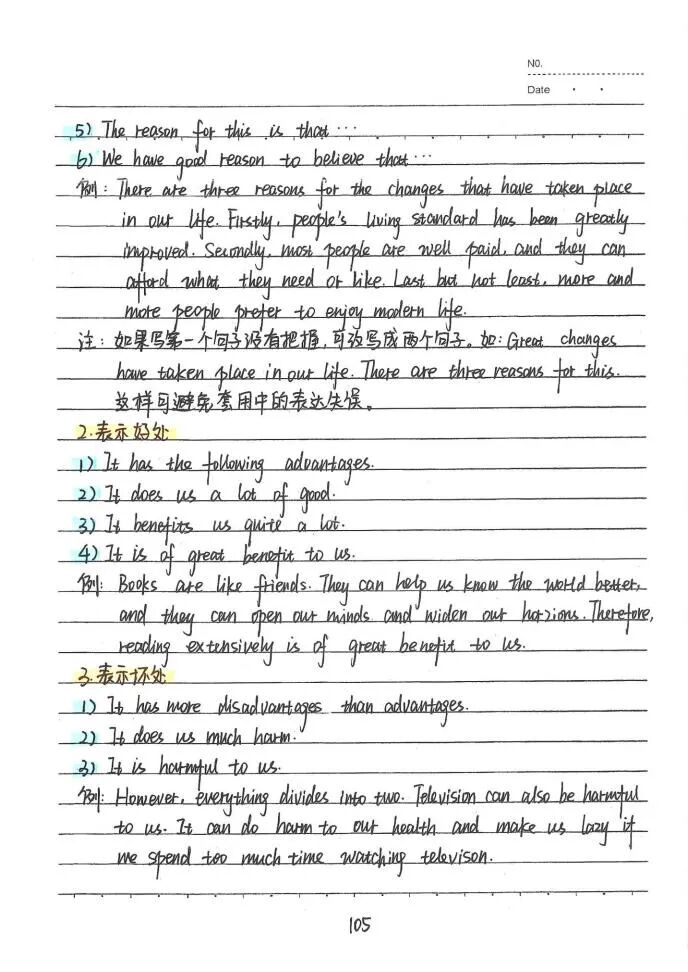 NO.
Date
5) The reason for this is that...
6) We have good reason to believe that...
例: There are three reasons for the changes that have taken place
in our life. Firstly, people's living standard has been greatly
improved. Secondly, most people are well paid, and they can
afford what they need or like. Last but not least, more and
more people prefer to enjoy modern life.
注: 如果写第一个句子没有把握,可改写成两个句子。如: Great changes
have taken place in our life. There are three reasons for this.
这样可避免套用中的表达失误。
2.表示好处
1) It has the following advantages.
2) It does us a lot of good.
3) It benefits us quite a lot.
4) It is of great benefit to us.
例: Books are like friends. They can help us know the world better,
and they can open our minds and widen our horzions. Therefore,
reading extensively is of great benefit to us.
3.表示坏处
1) It has more disadvantages than advantages.
2) It does us much harm.
3) It is harmful to us.
例: However, everything divides into two. Television can also be harmful
to us. It can do harm to our health and make us lazy if
we spend too much time watching televison.
105